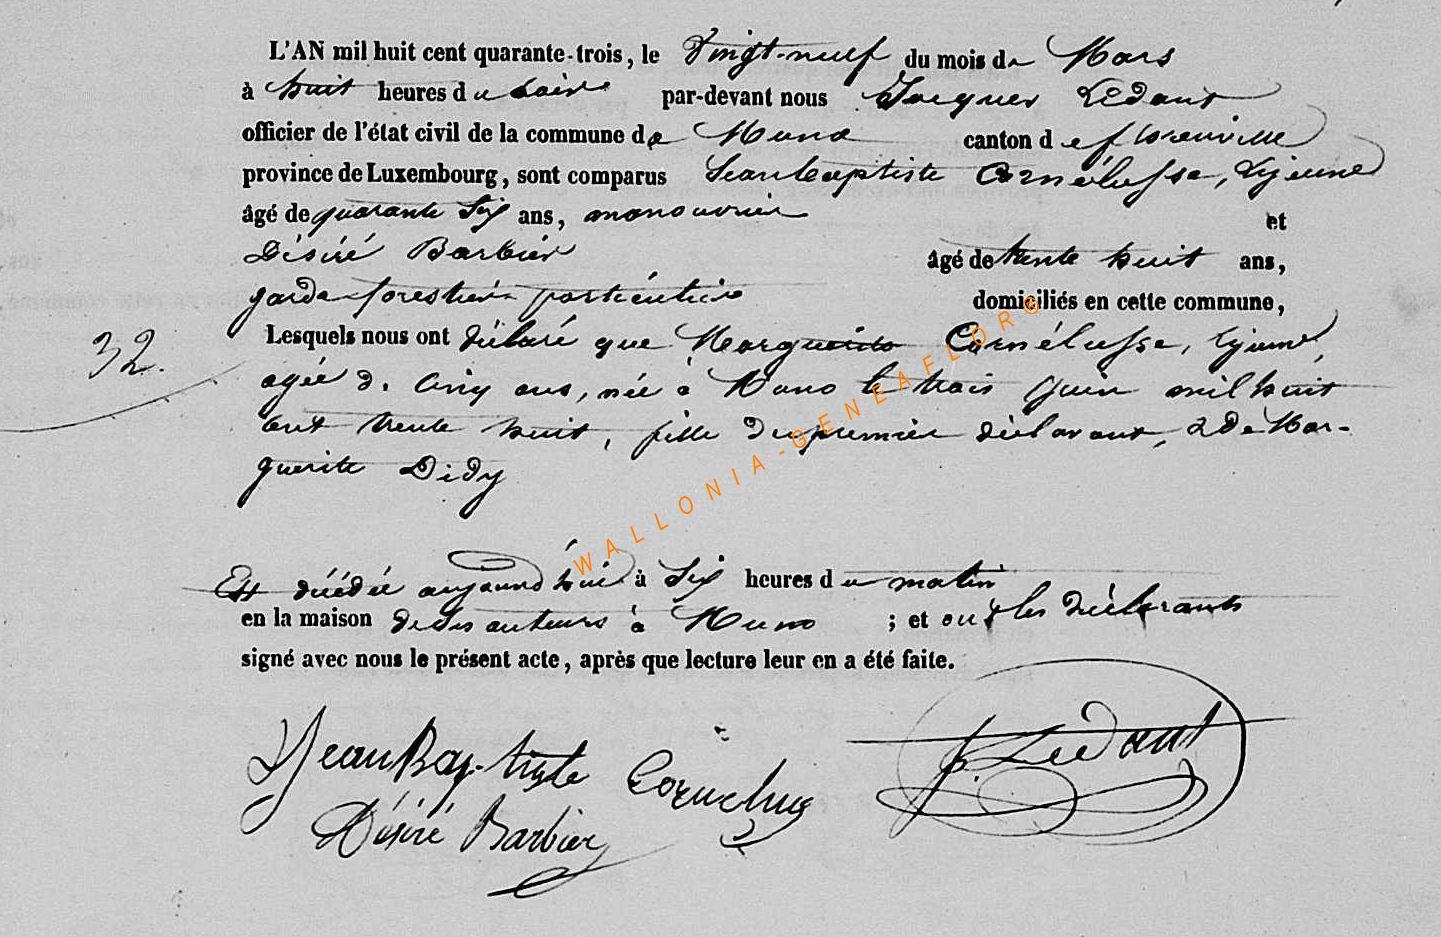 L'AN mil huit cent quarante-trois, le Vingt-neuf du mois de Mars
à huit heures du Soir par-devant nous Jacques Lédant
officier de l'état civil de la commune de Muno canton de florenville
province de Luxembourg, sont comparus Jean baptiste Cornélusse, Lejeune
âgé de quarante Six ans, manouvrier et
Désiré Barbier âgé de trente huit ans,
garde forestier particulier domiciliés en cette commune,
32. Lesquels nous ont déclaré que Marguerite Cornélusse, lejeune,
agée de Cinq ans, née à Muno le trois Juin mil huit
cent trente huit, fille du premier déclarant, & De Mar-
guerite Didy
Est décédée aujourd'hui à Six heures du matin
en la maison de ses auteurs à Muno ; et ont les déclarants
signé avec nous le présent acte, après que lecture leur en a été faite.
Jean Baptiste Cornelusse J. Lédant
Désiré Barbier
WALLONIA-GENEAFLORO